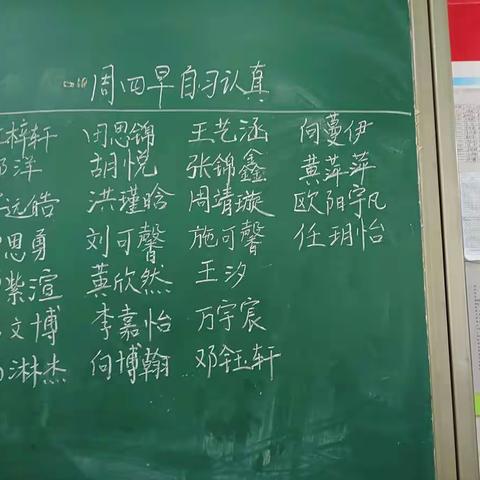 周四早自习认真
梓轩 田思锦 王艺涵 向蔓伊
洋 胡悦 张锦鑫 黄萍萍
远皓 洪瑾晗 周靖璇 欧阳宇凡
思勇 刘可馨 施可馨 任玥怡
紫渲 黄欣然 王汐
文博 李嘉怡 万宇宸
淋杰 向博翰 邓钰轩